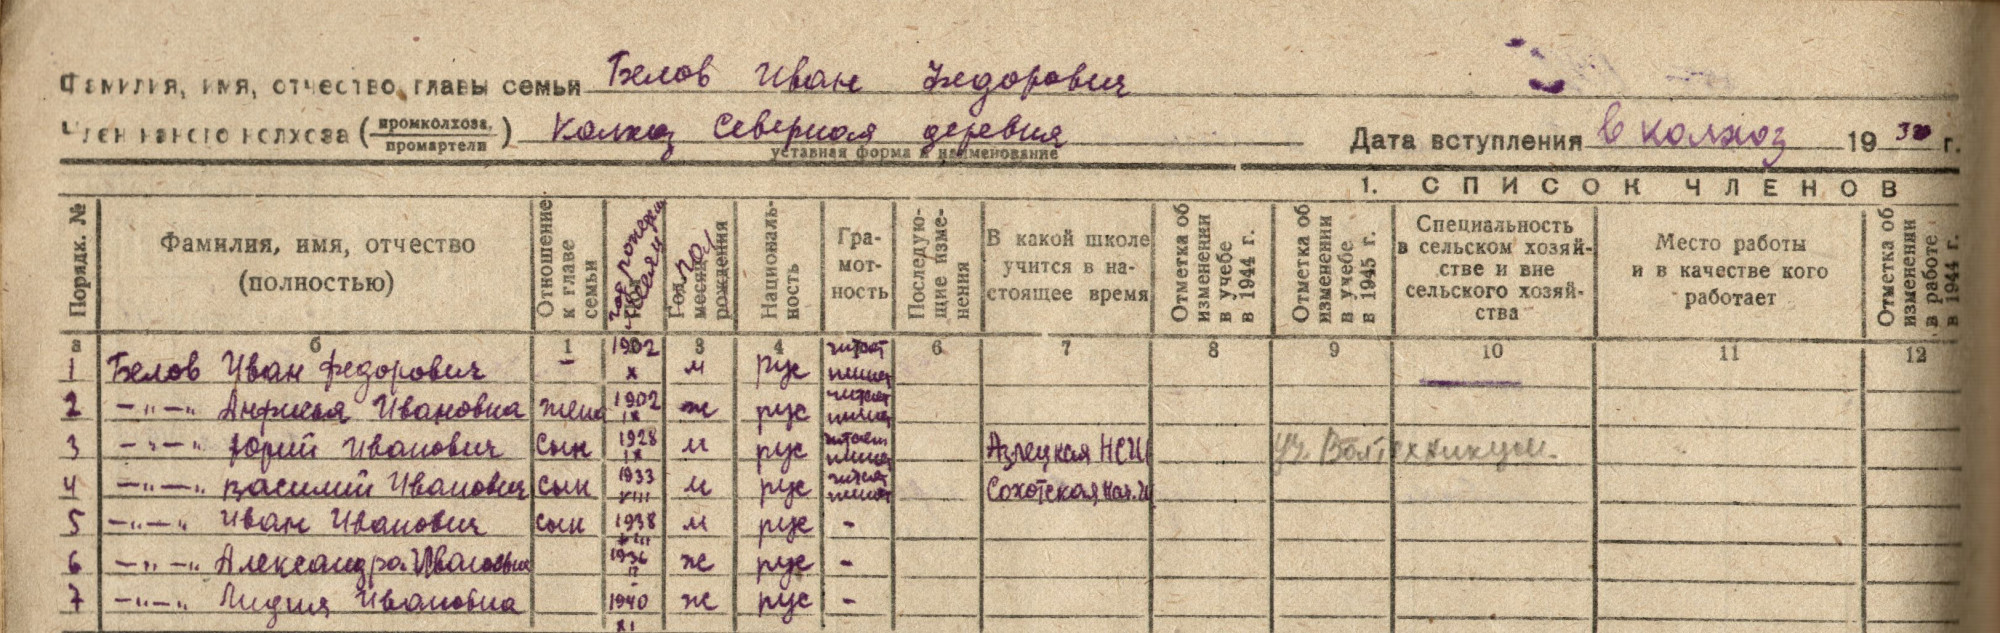 Фамилия, имя, отчество, главы семьи Белов Иван Федорович
Член какого колхоза (промколхоза, промартели) Колхоз Северная деревня
уставная форма и наименование
Дата вступления в колхоз 19 30 г.
1. СПИСОК ЧЛЕНОВ
Порядк. № Фамилия, имя, отчество (полностью) Отношение к главе семьи год рождения месяц Пол Год и месяц рождения Националь-ность Гра-мот-ность Последую-щие изме-нения В какой школе учится в на-стоящее время Отметка об изменении в учебе в 1944 г. Отметка об изменении в учебе в 1945 г. Специальность в сельском хозяй-стве и вне сельского хозяй-ства Место работы и в качестве кого работает Отметка об изменении в работе в 1944 г.
а б 1 3 4 6 7 8 9 10 11 12
1 Белов Иван Федорович – 1902 X м рус читает пишет
2 –"–" Анфисья Ивановна жена 1902 IX ж рус читает пишет
3 –"–" Юрий Иванович сын 1928 IX м рус читает пишет Азлецкая НСШ уч. Веттехникум.
4 –"–" Василий Иванович сын 1933 VIII м рус читает пишет Сохотская нач. ш
5 –"–" Иван Иванович сын 1938 VIII м рус -
6 –"–" Александра Ивановна 1936 ж рус -
7 –"–" Лидия Ивановна 1940 XI ж рус -